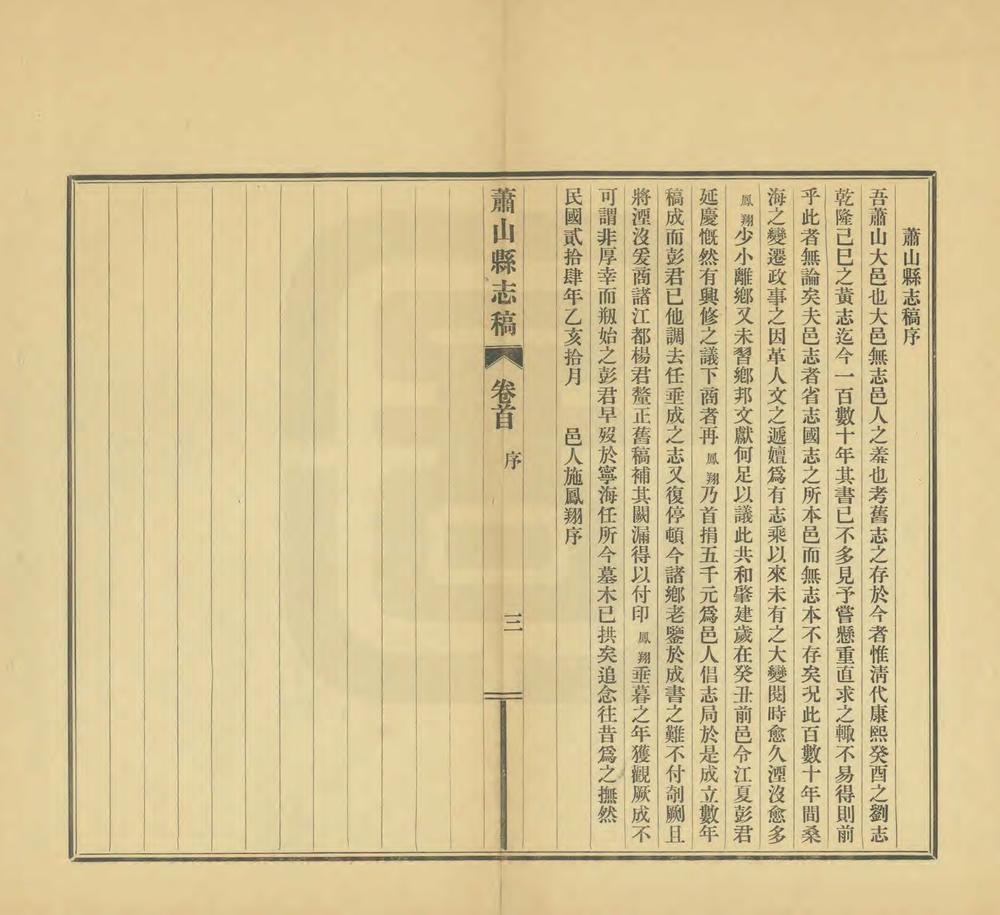 蕭山縣志稿序
吾蕭山大邑也大邑無志邑人之羞也考舊志之存於今者惟淸代康熙癸酉之劉志
乾隆己巳之黃志迄今一百數十年其書已不多見予嘗懸重直求之輒不易得則前
乎此者無論矣夫邑志者省志國志之所本邑而無志本不存矣況此百數十年間桑
海之變遷政事之因革人文之遞嬗爲有志乘以來未有之大變閱時愈久湮沒愈多
鳳翔少小離鄕又未習鄕邦文獻何足以議此共和肇建歲在癸丑前邑令江夏彭君
延慶慨然有興修之議下商者再鳳翔乃首捐五千元爲邑人倡志局於是成立數年
稿成而彭君已他調去任垂成之志又復停頓今諸鄕老鑒於成書之難不付剞劂且
將湮沒爰商諸江都楊君釐正舊稿補其闕漏得以付印鳳翔垂暮之年獲觀厥成不
可謂非厚幸而剏始之彭君早歿於寧海任所今墓木已拱矣追念往昔爲之撫然
民國貳拾肆年乙亥拾月 邑人施鳳翔序
蕭山縣志稿 卷首 序 三